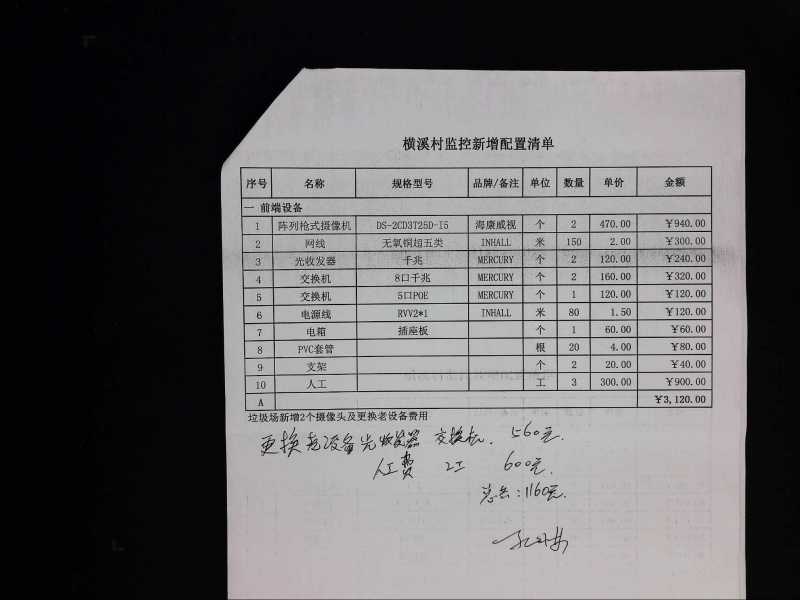 横溪村监控新增配置清单
序号 名称 规格型号 品牌/备注 单位 数量 单价 金额
一 前端设备
1 阵列枪式摄像机 DS-2CD3T25D-I5 海康威视 个 2 470.00 ¥940.00
2 网线 无氧铜超五类 INHALL 米 150 2.00 ¥300.00
3 光收发器 千兆 MERCURY 个 2 120.00 ¥240.00
4 交换机 8口千兆 MERCURY 个 2 160.00 ¥320.00
5 交换机 5口POE MERCURY 个 1 120.00 ¥120.00
6 电源线 RVV2*1 INHALL 米 80 1.50 ¥120.00
7 电箱 插座板 个 1 60.00 ¥60.00
8 PVC套管 根 20 4.00 ¥80.00
9 支架 个 2 20.00 ¥40.00
10 人工 工 3 300.00 ¥900.00
A ¥3,120.00
垃圾场新增2个摄像头及更换老设备费用
更换老设备光收发器 交换机. 560元.
人工费 2工 600元.
总共:1160元.